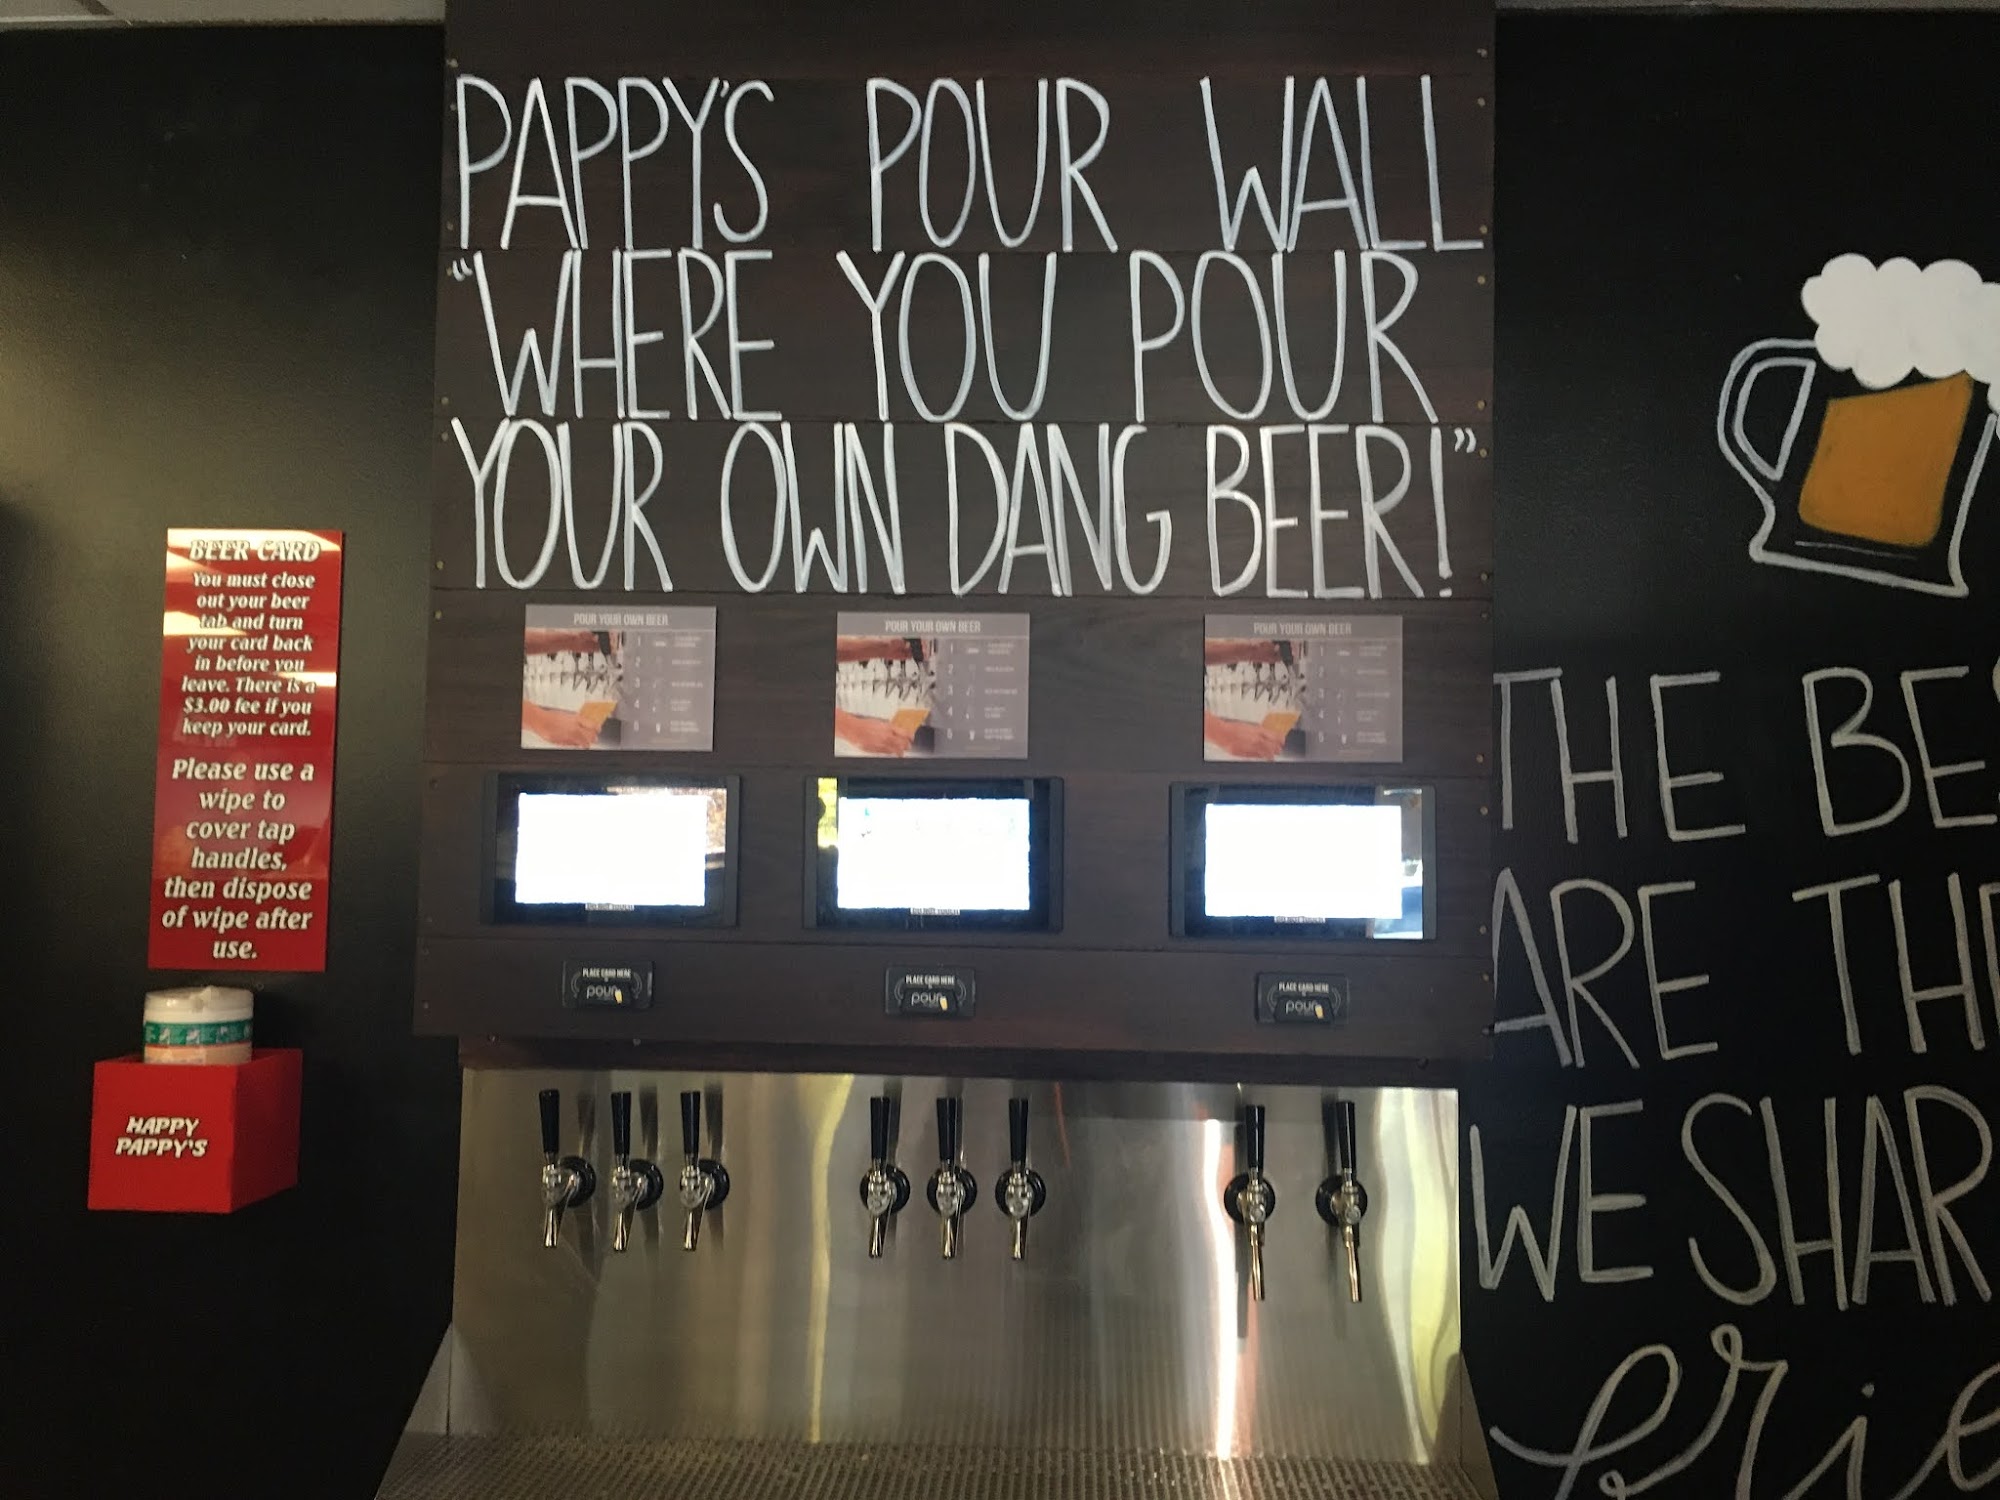 PAPPY'S POUR WALL
"WHERE YOU POUR
YOUR OWN DANG BEER!"
BEER CARD
You must close
out your beer
tab and turn
your card back
in before you
leave. There is a
$3.00 fee if you
keep your card.
Please use a
wipe to
cover tap
handles,
then dispose
of wipe after
use.
HAPPY
PAPPY'S
POUR YOUR OWN BEER
1
2
3
4
5
POUR YOUR OWN BEER
1
2
3
4
5
POUR YOUR OWN BEER
1
2
3
4
5
PLACE CARD HERE
pour
PLACE CARD HERE
pour
PLACE CARD HERE
pour
THE BE
ARE THE
WE SHAR
frie